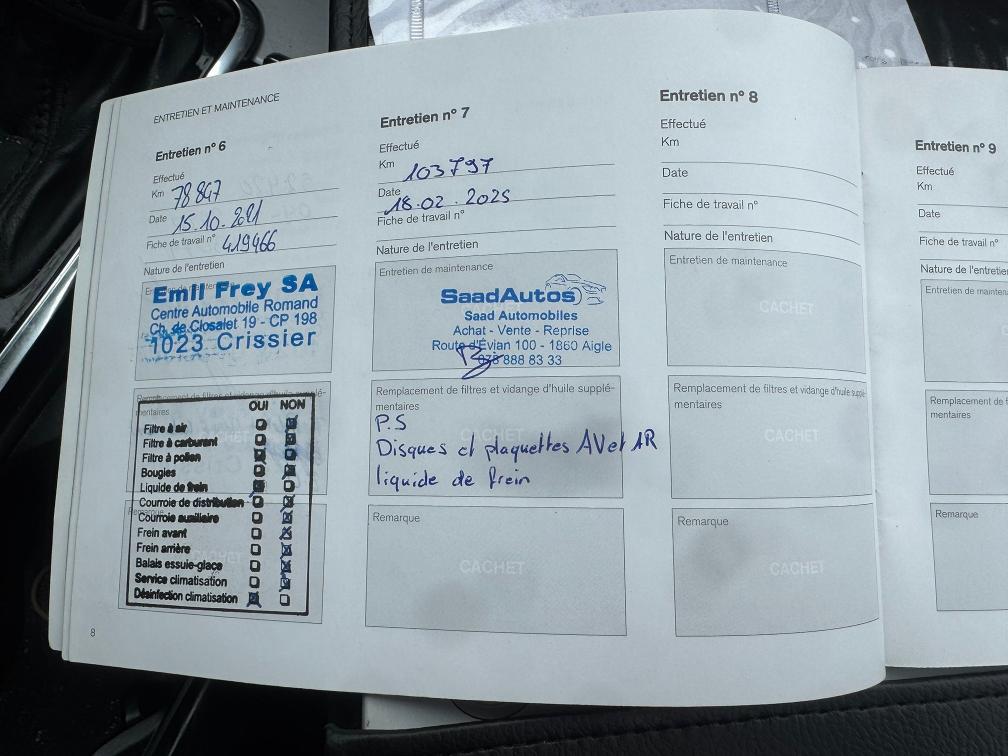 ENTRETIEN ET MAINTENANCE
Entretien n° 6
Effectué
Km 78 847
Date 15.10.2021
Fiche de travail n° 419466
Nature de l'entretien
Emil Frey SA
Centre Automobile Romand
Ch. de Closalet 19 - CP 198
1023 Crissier
Remplacement de filtres et vidange d'huile supplé-
mentaires
OUI NON
Filtre à air
Filtre à carburant
Filtre à pollen
Bougies
Liquide de frein
Courroie de distribution
Courroie auxiliaire
Frein avant
Frein arrière
Balais essuie-glace
Service climatisation
Désinfection climatisation
8
Entretien n° 7
Effectué
Km 103797
Date 18.02.2025
Fiche de travail n°
Nature de l'entretien
Entretien de maintenance
SaadAutos
Saad Automobiles
Achat - Vente - Reprise
Route d'Évian 100 - 1860 Aigle
888 83 33
Remplacement de filtres et vidange d'huile supplé-
mentaires
P.S
Disques et plaquettes AV et AR
liquide de frein
Remarque
CACHET
Entretien n° 8
Effectué
Km
Date
Fiche de travail n°
Nature de l'entretien
Entretien de maintenance
CACHET
Remplacement de filtres et vidange d'huile supplé-
mentaires
CACHET
Remarque
CACHET
Entretien n° 9
Effectué
Km
Date
Fiche de travail n°
Nature de l'entretien
Entretien de
Remplacement de
mentaires
Remarque